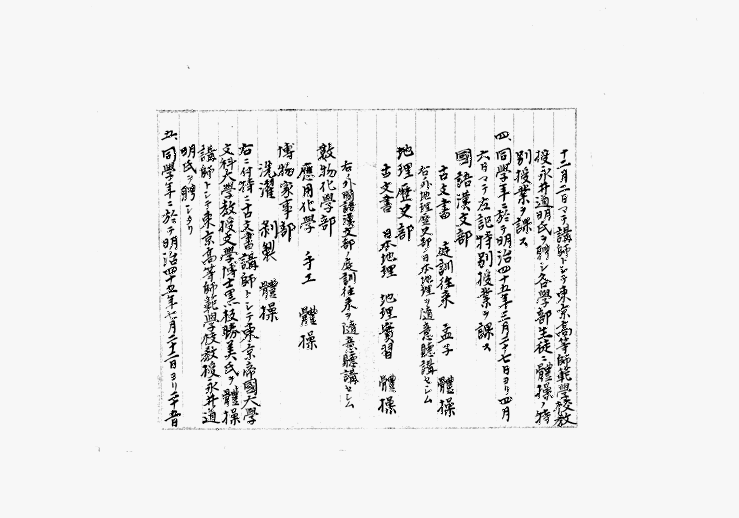 十二月二日マテ講師トシテ東京高等師範學校教
授永井道明氏ヲ聘シ各學部生徒ニ體操ノ特
別授業ヲ課ス
四、同學年ニ於テ明治四十五年三月二十七日ヨリ四月
六日マテ左記特別授業ヲ課ス
國語漢文部
古文書 庭訓往來 孟子 體操
右ノ外地理歴史部ノ日本地理ヲ隨意聽講セシム
地理歴史部
古文書 日本地理 地理實習 體操
右ノ外國語漢文部ノ庭訓往來ヲ隨意聽講セシム
數物化學部
應用化學 手工 體操
博物家事部
洗濯 剥製 體操
右ニ付特ニ古文書講師トシテ東京帝國大學
文科大學教授文學博士黒板勝美氏ヲ體操
講師トシテ東京高等師範學校教授永井道
明氏ヲ聘シタリ
五、同學年ニ於テ明治四十五年七月二十二日ヨリ二十五日